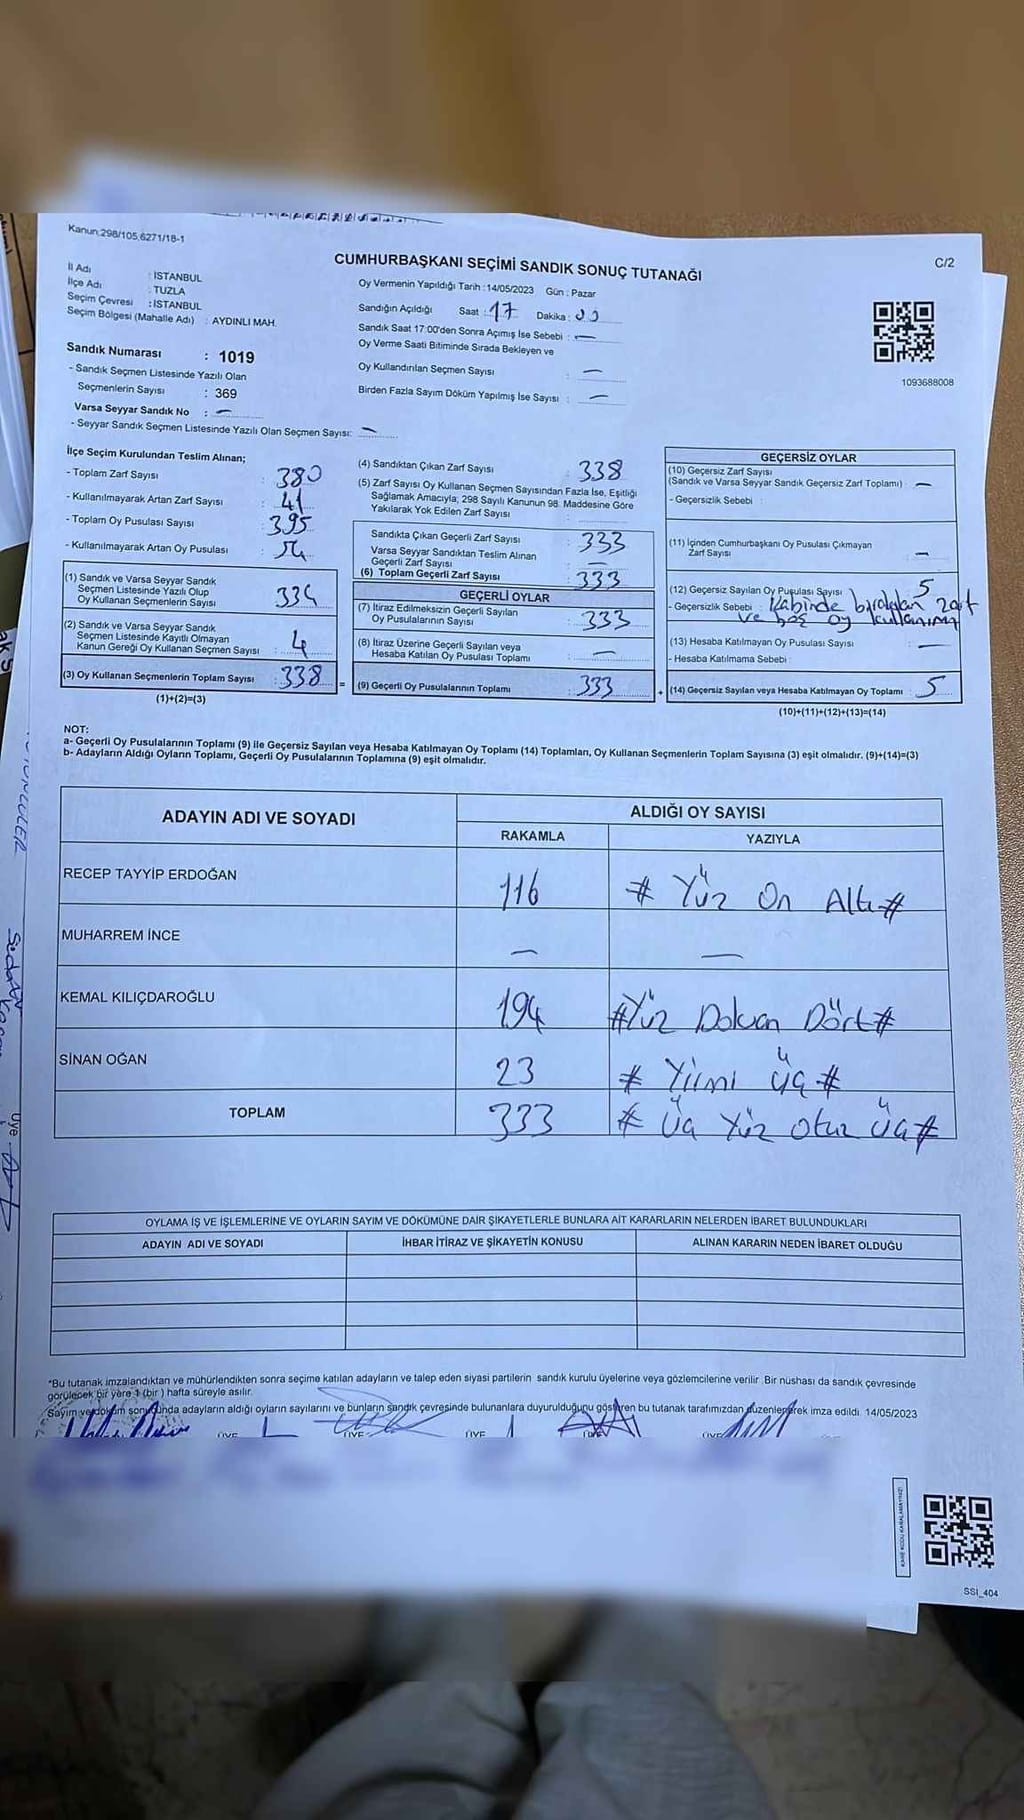 Kanun,298/105,6271/18-1
CUMHURBAŞKANI SEÇİMİ SANDIK SONUÇ TUTANAĞI
C/2
İl Adı : İSTANBUL
İlçe Adı : TUZLA
Seçim Çevresi : İSTANBUL
Seçim Bölgesi (Mahalle Adı) : AYDINLI MAH.
Sandık Numarası : 1019
- Sandık Seçmen Listesinde Yazılı Olan
Seçmenlerin Sayısı : 369
Varsa Seyyar Sandık No : —
- Seyyar Sandık Seçmen Listesinde Yazılı Olan Seçmen Sayısı: —
Oy Vermenin Yapıldığı Tarih :14/05/2023 Gün : Pazar
Sandığın Açıldığı Saat : 17 Dakika : 00
Sandık Saat 17:00'den Sonra Açımış İse Sebebi : —
Oy Verme Saati Bitiminde Sırada Bekleyen ve
Oy Kullandırılan Seçmen Sayısı : —
Birden Fazla Sayım Döküm Yapılmış İse Sayısı : —
1093688008
İlçe Seçim Kurulundan Teslim Alınan;
- Toplam Zarf Sayısı : 380
- Kullanılmayarak Artan Zarf Sayısı : 41
- Toplam Oy Pusulası Sayısı : 395
- Kullanılmayarak Artan Oy Pusulası :
(1) Sandık ve Varsa Seyyar Sandık
Seçmen Listesinde Yazılı Olup
Oy Kullanan Seçmenlerin Sayısı : 334
(2) Sandık ve Varsa Seyyar Sandık
Seçmen Listesinde Kayıtlı Olmayan
Kanun Gereği Oy Kullanan Seçmen Sayısı : 4
(3) Oy Kullanan Seçmenlerin Toplam Sayısı : 338
(1)+(2)=(3)
(4) Sandıktan Çıkan Zarf Sayısı : 338
(5) Zarf Sayısı Oy Kullanan Seçmen Sayısından Fazla İse, Eşitliği
Sağlamak Amacıyla; 298 Sayılı Kanunun 98. Maddesine Göre
Yakılarak Yok Edilen Zarf Sayısı :
Sandıkta Çıkan Geçerli Zarf Sayısı : 333
Varsa Seyyar Sandıktan Teslim Alınan
Geçerli Zarf Sayısı : —
(6) Toplam Geçerli Zarf Sayısı : 333
GEÇERLİ OYLAR
(7) İtiraz Edilmeksizin Geçerli Sayılan
Oy Pusulalarının Sayısı : 333
(8) İtiraz Üzerine Geçerli Sayılan veya
Hesaba Katılan Oy Pusulası Toplamı : —
= (9) Geçerli Oy Pusulalarının Toplamı : 333
GEÇERSİZ OYLAR
(10) Geçersiz Zarf Sayısı
(Sandık ve Varsa Seyyar Sandık Geçersiz Zarf Toplamı) : —
- Geçersizlik Sebebi :
(11) İçinden Cumhurbaşkanı Oy Pusulası Çıkmayan
Zarf Sayısı : —
(12) Geçersiz Sayılan Oy Pusulası Sayısı : 5
- Geçersizlik Sebebi : Kabinde bırakılan zarf
ve boş oy kullanımı
(13) Hesaba Katılmayan Oy Pusulası Sayısı : —
- Hesaba Katılmama Sebebi :
+ (14) Geçersiz Sayılan veya Hesaba Katılmayan Oy Toplamı : 5
(10)+(11)+(12)+(13)=(14)
NOT:
a- Geçerli Oy Pusulalarının Toplamı (9) ile Geçersiz Sayılan veya Hesaba Katılmayan Oy Toplamı (14) Toplamları, Oy Kullanan Seçmenlerin Toplam Sayısına (3) eşit olmalıdır. (9)+(14)=(3)
b- Adayların Aldığı Oyların Toplamı, Geçerli Oy Pusulalarının Toplamına (9) eşit olmalıdır.
ADAYIN ADI VE SOYADI
ALDIĞI OY SAYISI
RAKAMLA YAZIYLA
RECEP TAYYİP ERDOĞAN 116 # Yüz On Altı #
MUHARREM İNCE — —
KEMAL KILIÇDAROĞLU 194 # Yüz Doksan Dört #
SİNAN OĞAN 23 # Yirmi Üç #
TOPLAM 333 # Üç Yüz Otuz Üç #
OYLAMA İŞ VE İŞLEMLERİNE VE OYLARIN SAYIM VE DÖKÜMÜNE DAİR ŞİKAYETLERLE BUNLARA AİT KARARLARIN NELERDEN İBARET BULUNDUKLARI
ADAYIN ADI VE SOYADI İHBAR İTİRAZ VE ŞİKAYETİN KONUSU ALINAN KARARIN NEDEN İBARET OLDUĞU
*Bu tutanak imzalandıktan ve mühürlendikten sonra seçime katılan adayların ve talep eden siyasi partilerin sandık kurulu üyelerine veya gözlemcilerine verilir. Bir nüshası da sandık çevresinde
görülecek bir yere 1 (bir ) hafta süreyle asılır.
Sayım ve döküm sonucunda adayların aldığı oyların sayılarını ve bunların sandık çevresinde bulunanlara duyurulduğunu gösteren bu tutanak tarafımızdan düzenlenerek imza edildi. 14/05/2023
ÜYE ÜYE ÜYE ÜYE ÜYE
SSI_404